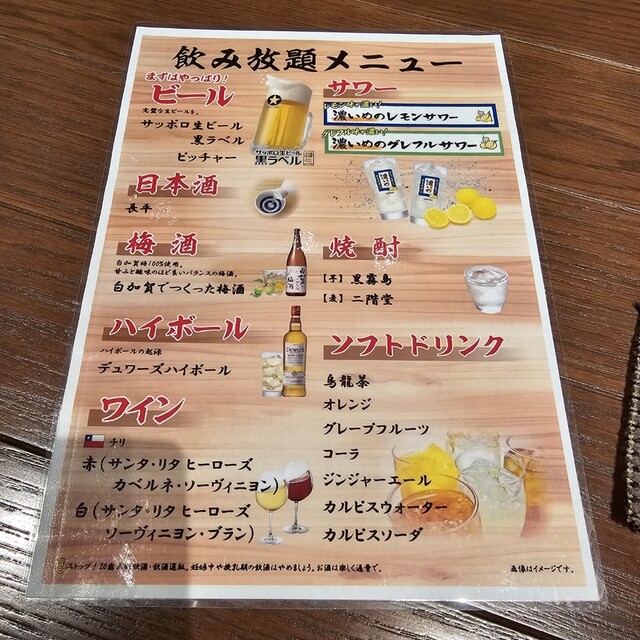 飲み放題メニュー
まずはやっぱり!
ビール
完璧な生ビールを。
サッポロ生ビール
黒ラベル
ピッチャー
サッポロ生ビール
黒ラベル
日本酒
長平
梅酒
白加賀梅100%使用。
甘みと酸味のほど良いバランスの梅酒。
白加賀でつくった梅酒
ハイボール
ハイボールの起源
デュワーズハイボール
ワイン
チリ
赤(サンタ・リタ ヒーローズ
カベルネ・ソーヴィニヨン)
白(サンタ・リタ ヒーローズ
ソーヴィニヨン・ブラン)
サワー
レモン味が濃い!
濃いめのレモンサワー
グレフル味が濃い!
濃いめのグレフルサワー
焼酎
【芋】黒霧島
【麦】二階堂
ソフトドリンク
烏龍茶
オレンジ
グレープフルーツ
コーラ
ジンジャーエール
カルピスウォーター
カルピスソーダ
ストップ!20歳未満飲酒・飲酒運転。妊娠中や授乳期の飲酒はやめましょう。お酒は楽しく適量で。
画像はイメージです。